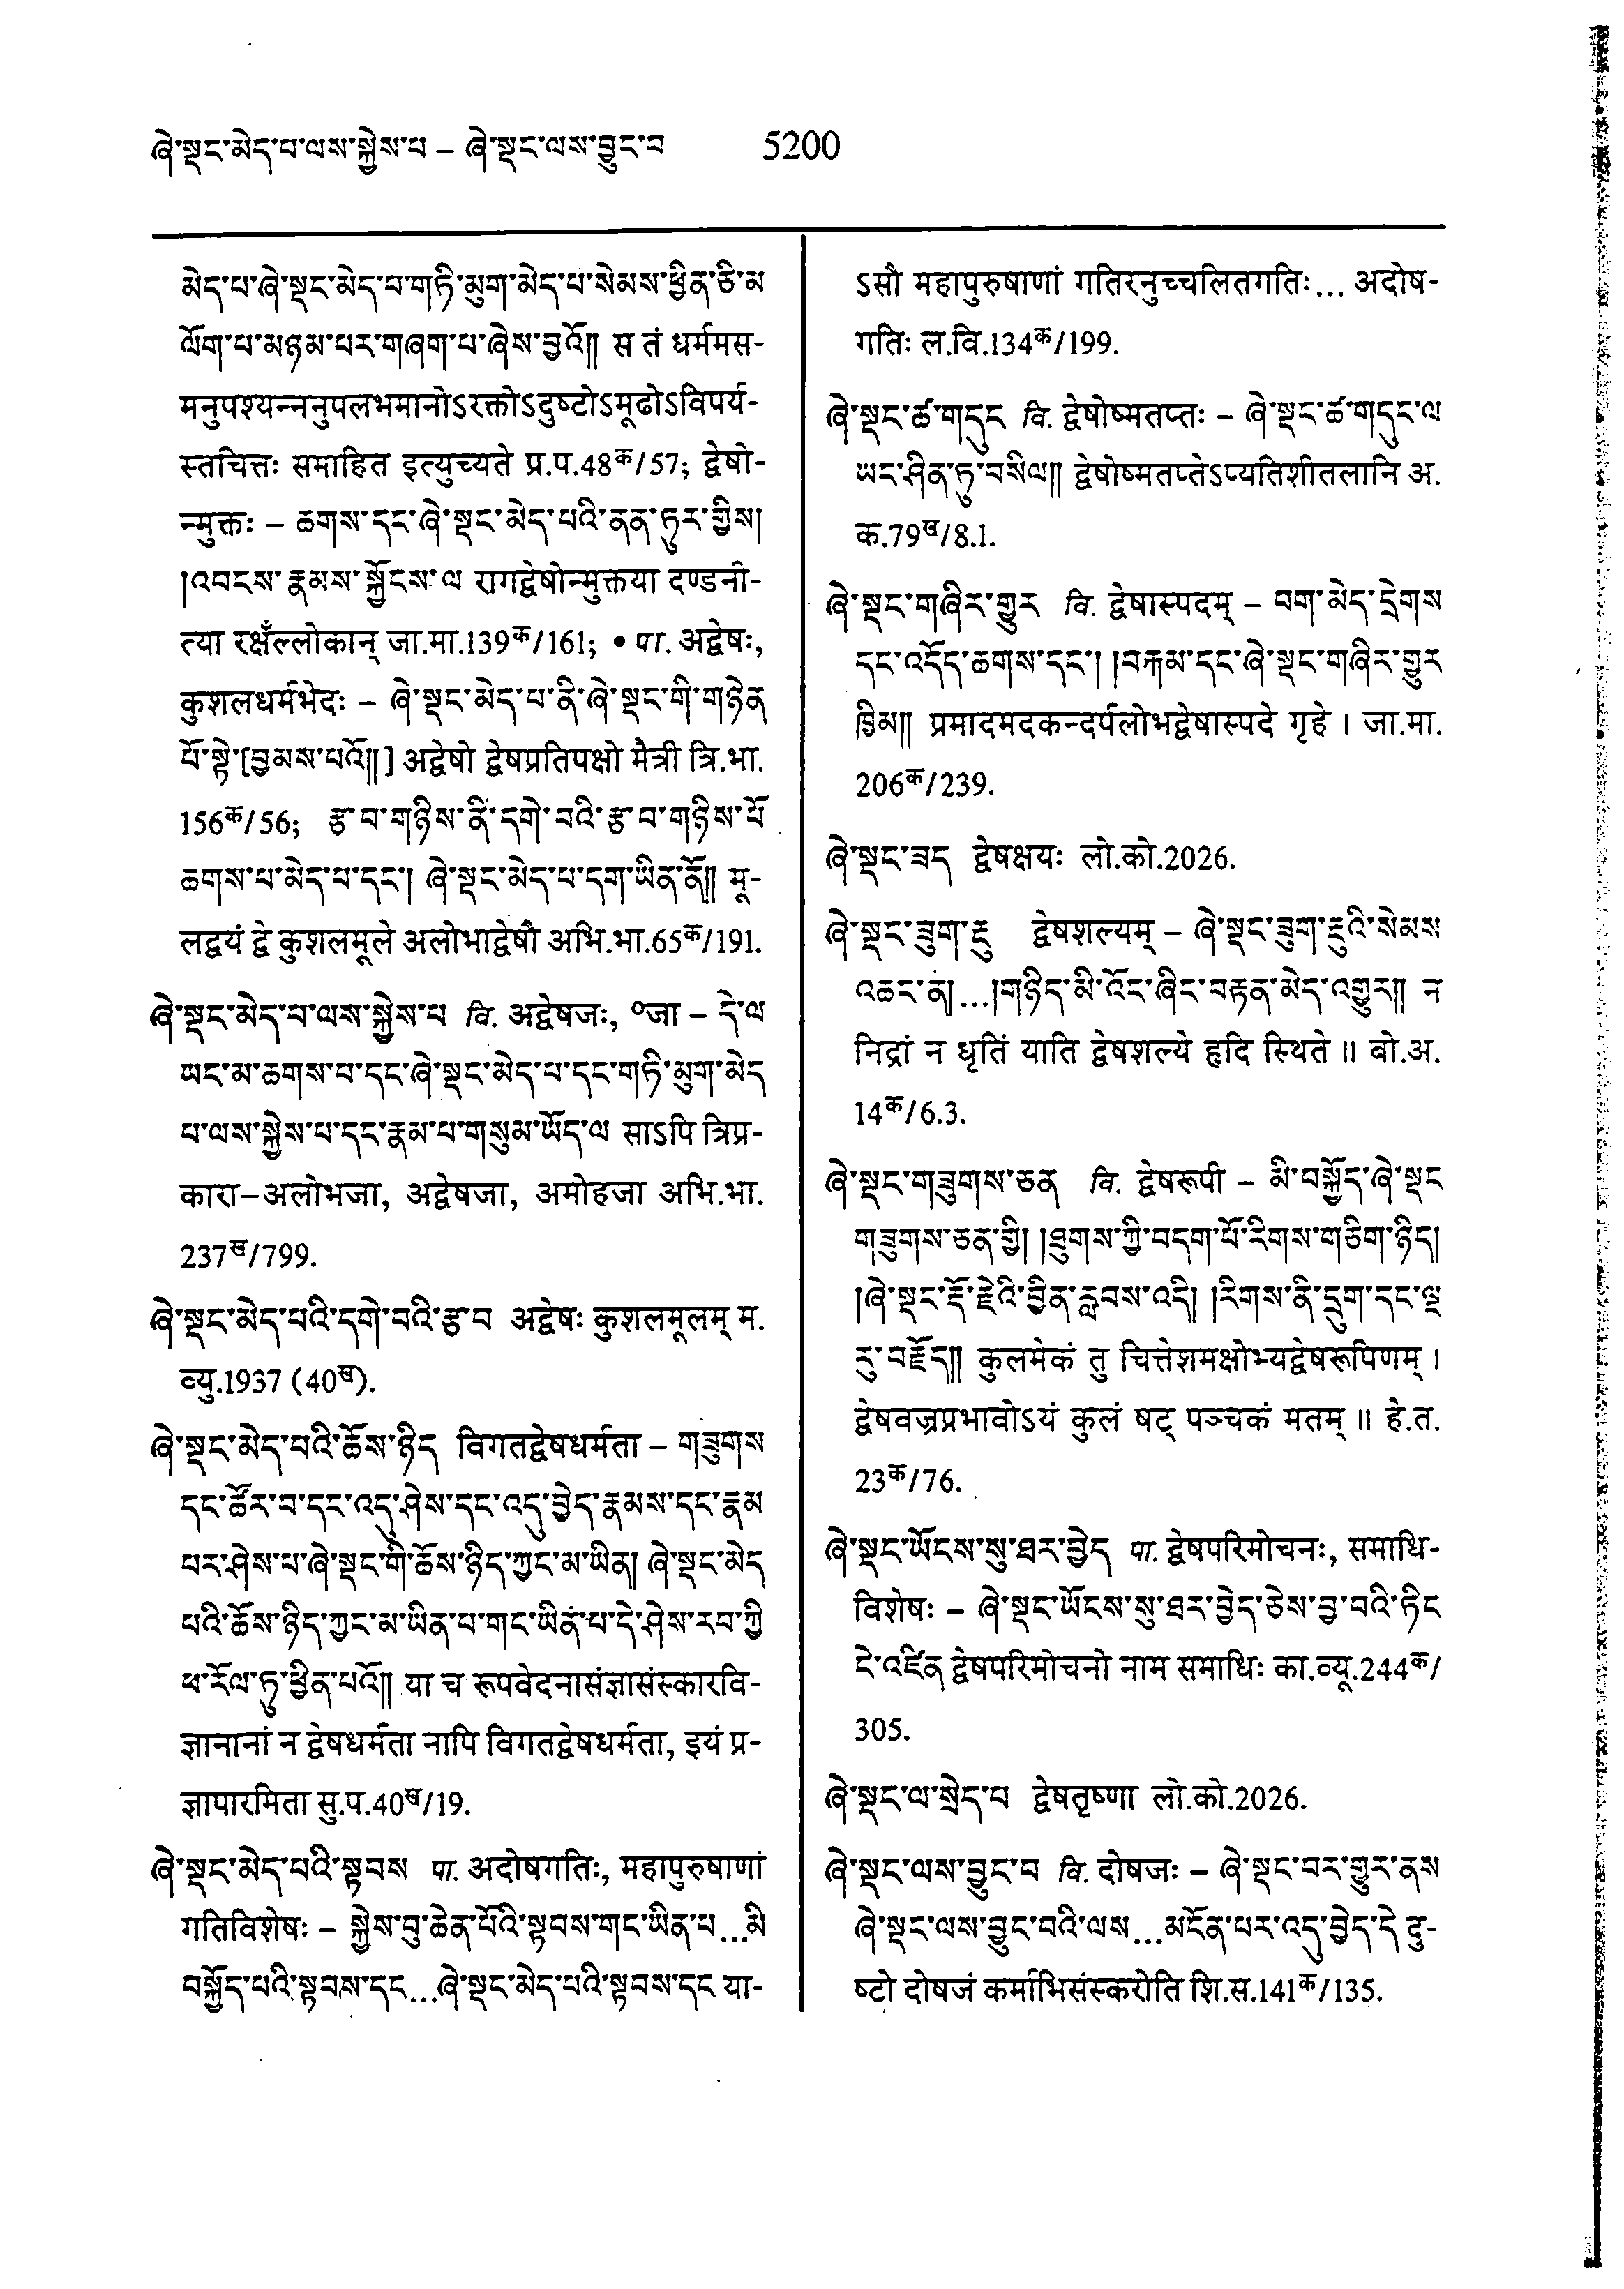 ཞེ་སྡང་མེད་པ་ལས་སྐྱེས་པ – ཞེ་སྡང་ལས་བྱུང་བ 5200
མེད་པ་ཞེ་སྡང་མེད་པ་གཏི་མུག་མེད་པ་སེམས་ཕྱིན་ཅི་མ
ལོག་པ་མཉམ་པར་གཞག་པ་ཞེས་བྱའོ།། स तं धर्ममस-
मनुपश्यन्ननुपलभमानोऽरक्तोऽदुष्टोऽमूढोऽविपर्य-
स्तचित्तः समाहित इत्युच्यते प्र.प.48क/57; द्वेषो-
न्मुक्तः – ཆགས་དང་ཞེ་སྡང་མེད་པའི་ནན་ཏུར་གྱིས།
།འབངས་རྣམས་སྐྱོངས་ལ रागद्वेषोन्मुक्तया दण्डनी-
त्या रक्षँल्लोकान् जा.मा.139क/161; • पा. अद्वेषः,
कुशलधर्मभेदः – ཞེ་སྡང་མེད་པ་ནི་ཞེ་སྡང་གི་གཉེན
པོ་སྟེ་[བྱམས་པའོ།།] अद्वेषो द्वेषप्रतिपक्षो मैत्री त्रि.भा.
156क/56; རྩ་བ་གཉིས་ནི་དགེ་བའི་རྩ་བ་གཉིས་པོ
ཆགས་པ་མེད་པ་དང་། ཞེ་སྡང་མེད་པ་དག་ཡིན་ནོ།། मू-
लद्वयं द्वे कुशलमूले अलोभाद्वेषौ अभि.भा.65क/191.
ཞེ་སྡང་མེད་པ་ལས་སྐྱེས་པ वि. अद्वेषजः, ०जा – དེ་ལ
ཡང་མ་ཆགས་པ་དང་ཞེ་སྡང་མེད་པ་དང་གཏི་མུག་མེད
པ་ལས་སྐྱེས་པ་དང་རྣམ་པ་གསུམ་ཡོད་ལ साऽपि त्रिप्र-
कारा–अलोभजा, अद्वेषजा, अमोहजा अभि.भा.
237ख/799.
ཞེ་སྡང་མེད་པའི་དགེ་བའི་རྩ་བ अद्वेषः कुशलमूलम् म.
व्यु.1937 (40ख).
ཞེ་སྡང་མེད་པའི་ཆོས་ཉིད विगतद्वेषधर्मता – གཟུགས
དང་ཚོར་བ་དང་འདུ་ཤེས་དང་འདུ་བྱེད་རྣམས་དང་རྣམ
པར་ཤེས་པ་ཞེ་སྡང་གི་ཆོས་ཉིད་ཀྱང་མ་ཡིན། ཞེ་སྡང་མེད
པའི་ཆོས་ཉིད་ཀྱང་མ་ཡིན་པ་གང་ཡིན་པ་དེ་ཤེས་རབ་ཀྱི
ཕ་རོལ་ཏུ་ཕྱིན་པའོ།། या च रूपवेदनासंज्ञासंस्कारवि-
ज्ञानानां न द्वेषधर्मता नापि विगतद्वेषधर्मता, इयं प्र-
ज्ञापारमिता सु.प.40ख/19.
ཞེ་སྡང་མེད་པའི་སྟབས पा. अदोषगतिः, महापुरुषाणां
गतिविशेषः – སྐྱེས་བུ་ཆེན་པོའི་སྟབས་གང་ཡིན་པ...མི
བསྐྱོད་པའི་སྟབས་དང...ཞེ་སྡང་མེད་པའི་སྟབས་དང या-
ऽसौ महापुरुषाणां गतिरनुच्चलितगतिः... अदोष-
गतिः ल.वि.134क/199.
ཞེ་སྡང་ཚ་གདུང वि. द्वेषोष्मतप्तः – ཞེ་སྡང་ཚ་གདུང་ལ
ཡང་ཤིན་ཏུ་བསིལ།། द्वेषोष्मतप्तेऽप्यतिशीतलानि अ.
क.79ख/8.1.
ཞེ་སྡང་གཞིར་གྱུར वि. द्वेषास्पदम् – བག་མེད་དྲེགས
དང་འདོད་ཆགས་དང་། །བརྐམ་དང་ཞེ་སྡང་གཞིར་གྱུར
ཁྱིམ།། प्रमादमदकन्दर्पलोभद्वेषास्पदे गृहे । जा.मा.
206क/239.
ཞེ་སྡང་ཟད द्वेषक्षयः लो.को.2026.
ཞེ་སྡང་ཟུག་རྔུ द्वेषशल्यम् – ཞེ་སྡང་ཟུག་རྔུའི་སེམས
འཆང་ན།...།གཉིད་མི་འོང་ཞིང་བརྟན་མེད་འགྱུར།། न
निद्रां न धृतिं याति द्वेषशल्ये हृदि स्थिते ॥ बो.अ.
14क/6.3.
ཞེ་སྡང་གཟུགས་ཅན वि. द्वेषरूपी – མི་བསྐྱོད་ཞེ་སྡང
གཟུགས་ཅན་གྱི། །ཐུགས་ཀྱི་བདག་པོ་རིགས་གཅིག་ཉིད།
།ཞེ་སྡང་རྡོ་རྗེའི་བྱིན་རླབས་འདི། །རིགས་ནི་དྲུག་དང་ལྔ
རུ་བརྗོད།། कुलमेकं तु चित्तेशमक्षोभ्यद्वेषरूपिणम् ।
द्वेषवज्रप्रभावोऽयं कुलं षट् पञ्चकं मतम् ॥ हे.त.
23क/76.
ཞེ་སྡང་ཡོངས་སུ་ཐར་བྱེད पा. द्वेषपरिमोचनः, समाधि-
विशेषः – ཞེ་སྡང་ཡོངས་སུ་ཐར་བྱེད་ཅེས་བྱ་བའི་ཏིང
ངེ་འཛིན द्वेषपरिमोचनो नाम समाधिः का.व्यू.244क/
305.
ཞེ་སྡང་ལ་སྲེད་པ द्वेषतृष्णा लो.को.2026.
ཞེ་སྡང་ལས་བྱུང་བ वि. दोषजः – ཞེ་སྡང་བར་གྱུར་ནས
ཞེ་སྡང་ལས་བྱུང་བའི་ལས...མངོན་པར་འདུ་བྱེད་དེ दु-
ष्टो दोषजं कर्माभिसंस्करोति शि.स.141क/135.